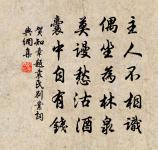 主人不相識
偶坐為林泉
莫謾愁沽酒
囊中自有錢
賀知章題袁氏別業詞